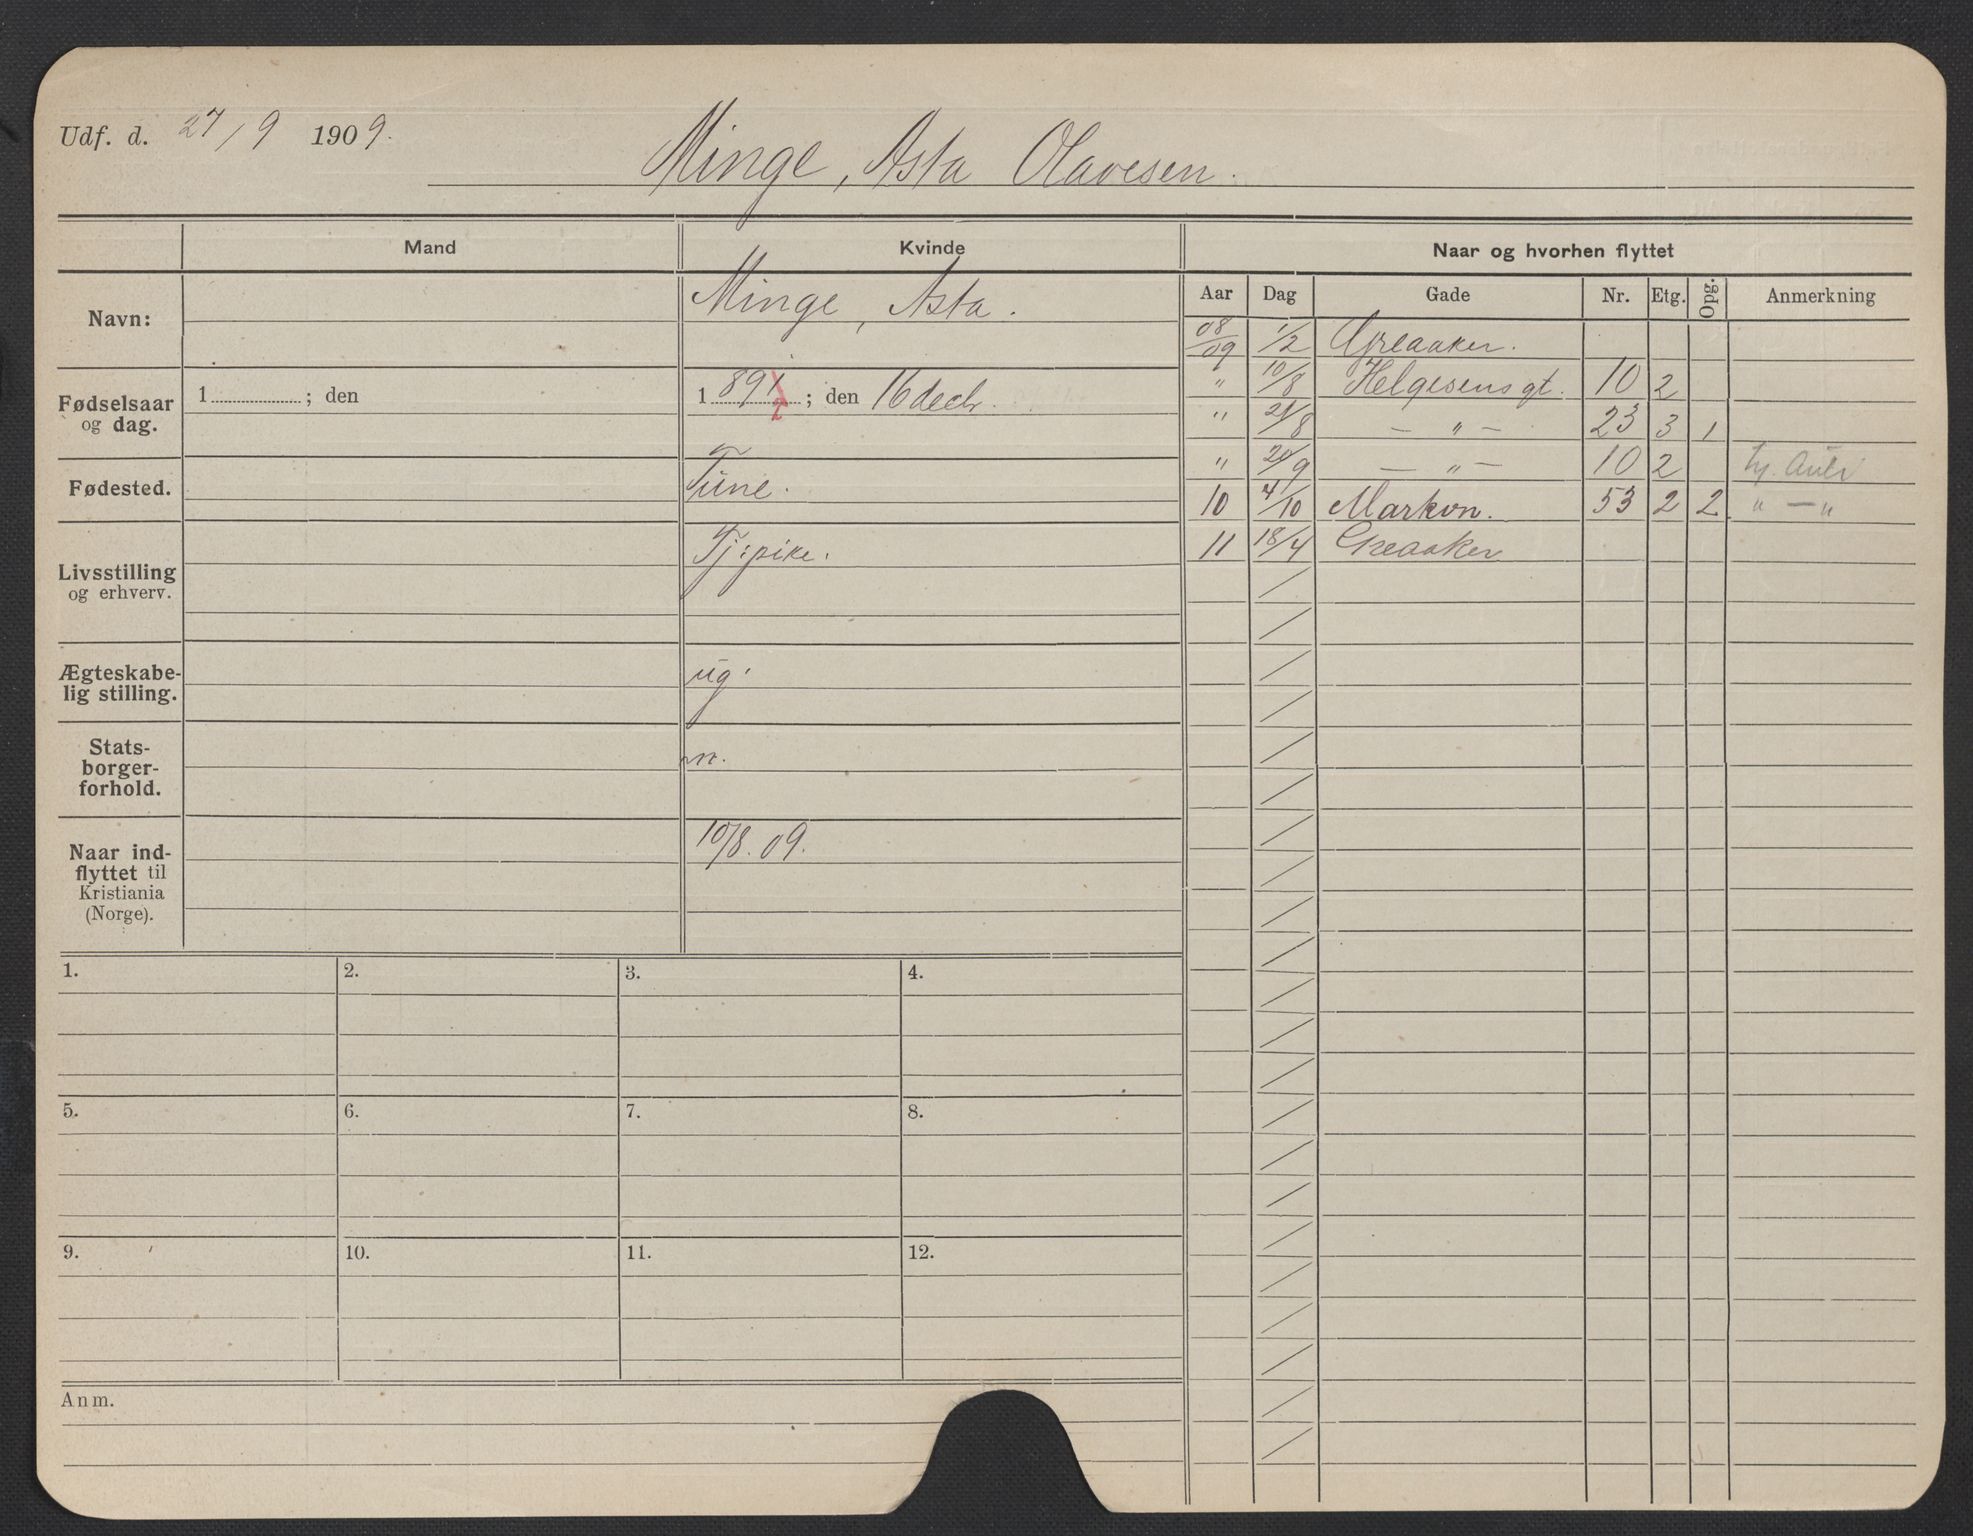 Udf. d. 27/9 1909.
Minge, Asta Olavesen.
Mand
Kvinde
Naar og hvorhen flyttet
Aar Dag Gade Nr. Etg. Opg. Anmerkning
Navn:
Minge, Asta.
Fødselsaar
og dag.
1 ; den
1 891 2 ; den 16 decbr.
Fødested.
Tune.
Livsstilling
og erhverv.
Tj: pike.
Ægteskabe-
lig stilling.
ug.
Stats-
borger-
forhold.
n.
Naar ind-
flyttet til
Kristiania
(Norge).
10/8. 09.
08/09 1/2 Greaaker.
" 10/8 Helgesens gt. 10 2
" 21/8 — " — 23 3 1
" 20/9 — " — 10 2 hj.
10 4/10 Markvn. 53 2 2 " — "
11 18/4 Greaaker
1. 2. 3. 4.
5. 6. 7. 8.
9. 10. 11. 12.
Anm.